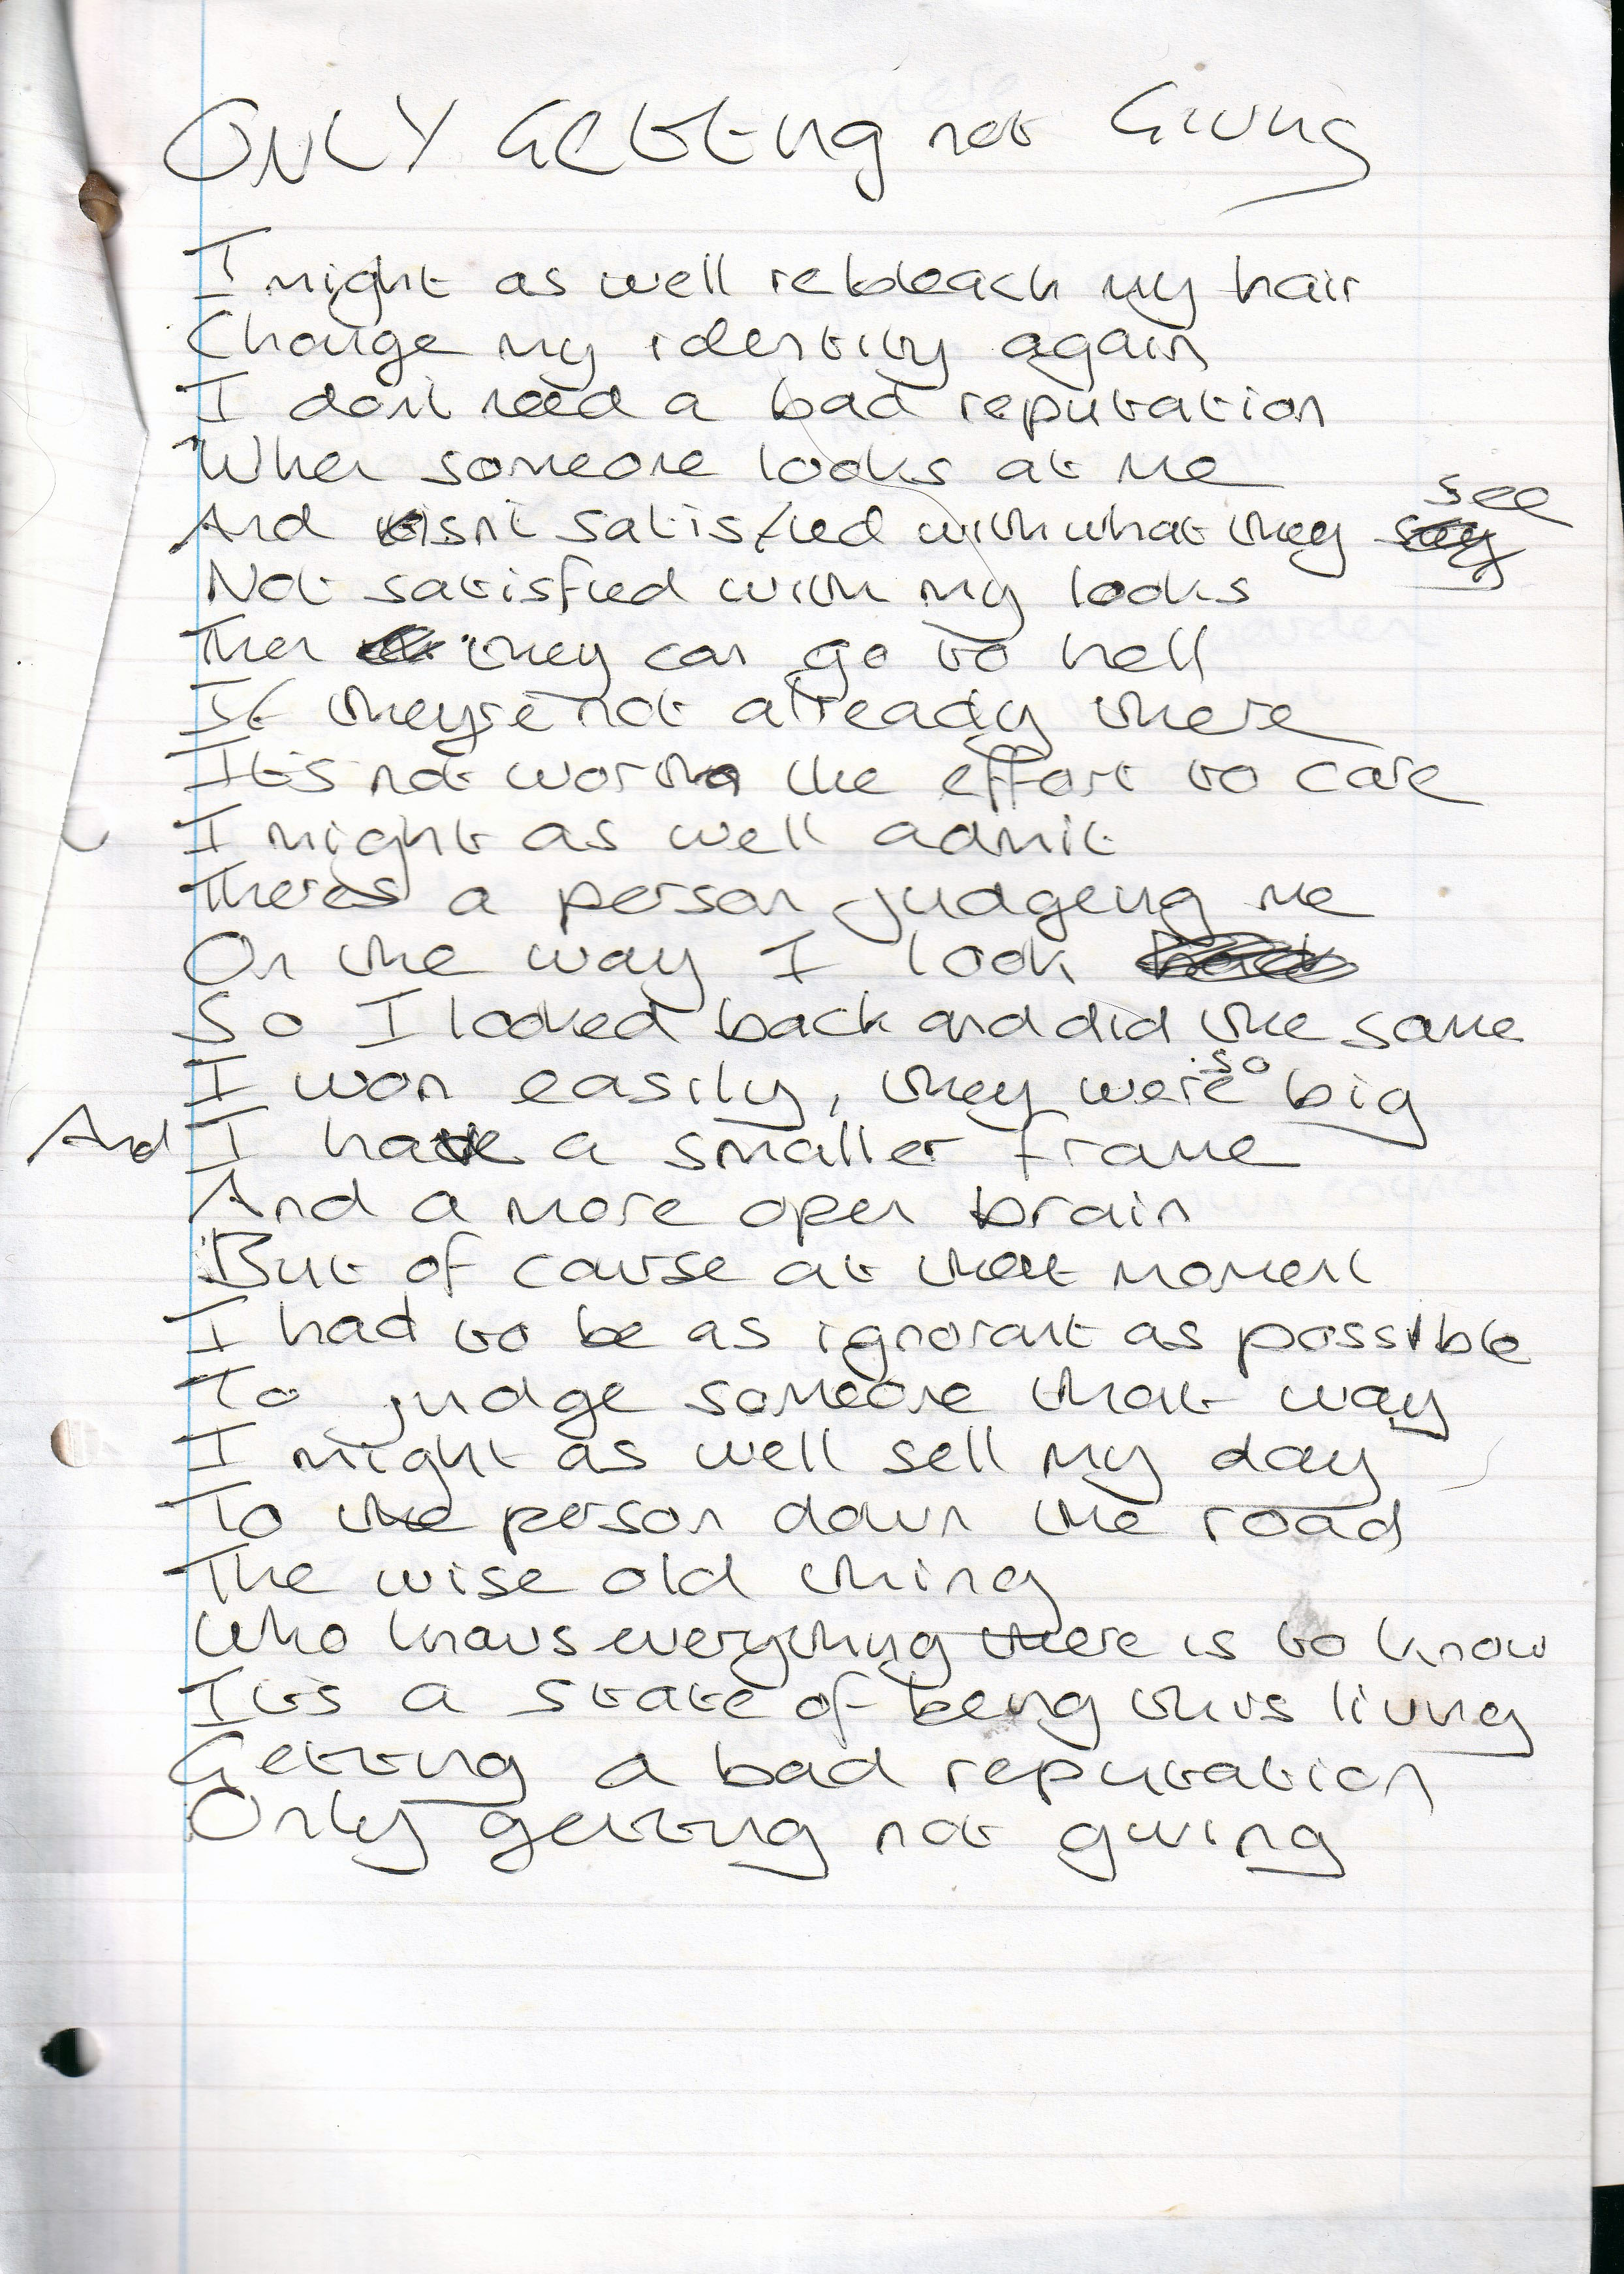 ONLY GETTING not Giving
I might as well rebleach my hair
Change my identity again
I don't need a bad reputation
When someone looks at me
And isn't satisfied with what they see
Not satisfied with my looks
Then they can go to hell
If they're not already there
It's not worth the effort to care
I might as well admit
Theres a person judgeing me
On the way I look
So I looked back and did the same
I won easily, they were so big
And I have a smaller frame
And a more open brain
But of course at that moment
I had to be as ignorant as possible
To judge someone that way
I might as well sell my day
To the person down the road
The wise old thing
Who knows everything there is to know
It's a state of being this living
Getting a bad reputation
Only getting not giving